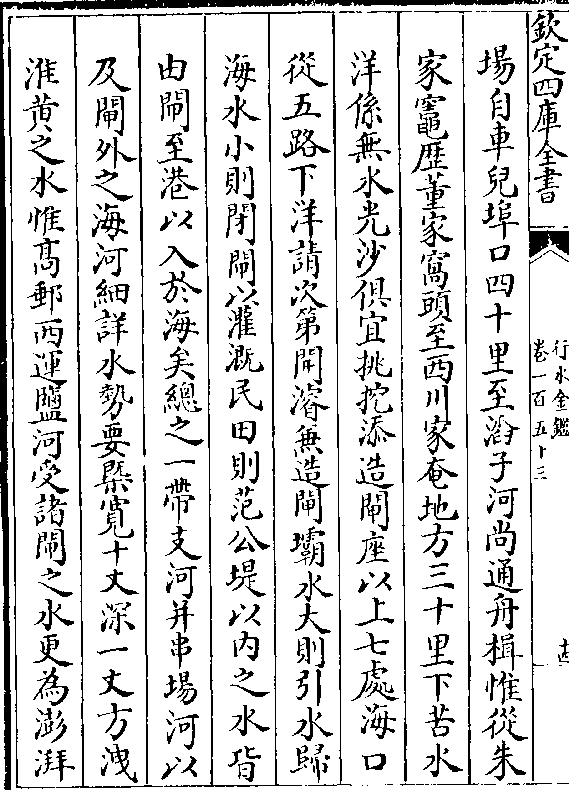 欽定四庫全書
行水金鑑
卷一百五十三
場自車兒埠口四十里至滧子河尚通舟楫惟從朱
家竈歷董家窩頭至西川家奄地方三十里下苦水
洋係無水光沙俱宜挑挖添造閘座以上七處海口
從五路下洋請次第開濬無造閘壩水大則引水歸
海水小則閉閘以灌溉民田則范公堤以内之水皆
由閘至港以入於海矣總之一帶支河并串場河以
及閘外之海河細詳水勢要槩寬十丈深一丈方洩
淮黄之水惟髙郵西運鹽河受諸閘之水更為澎湃